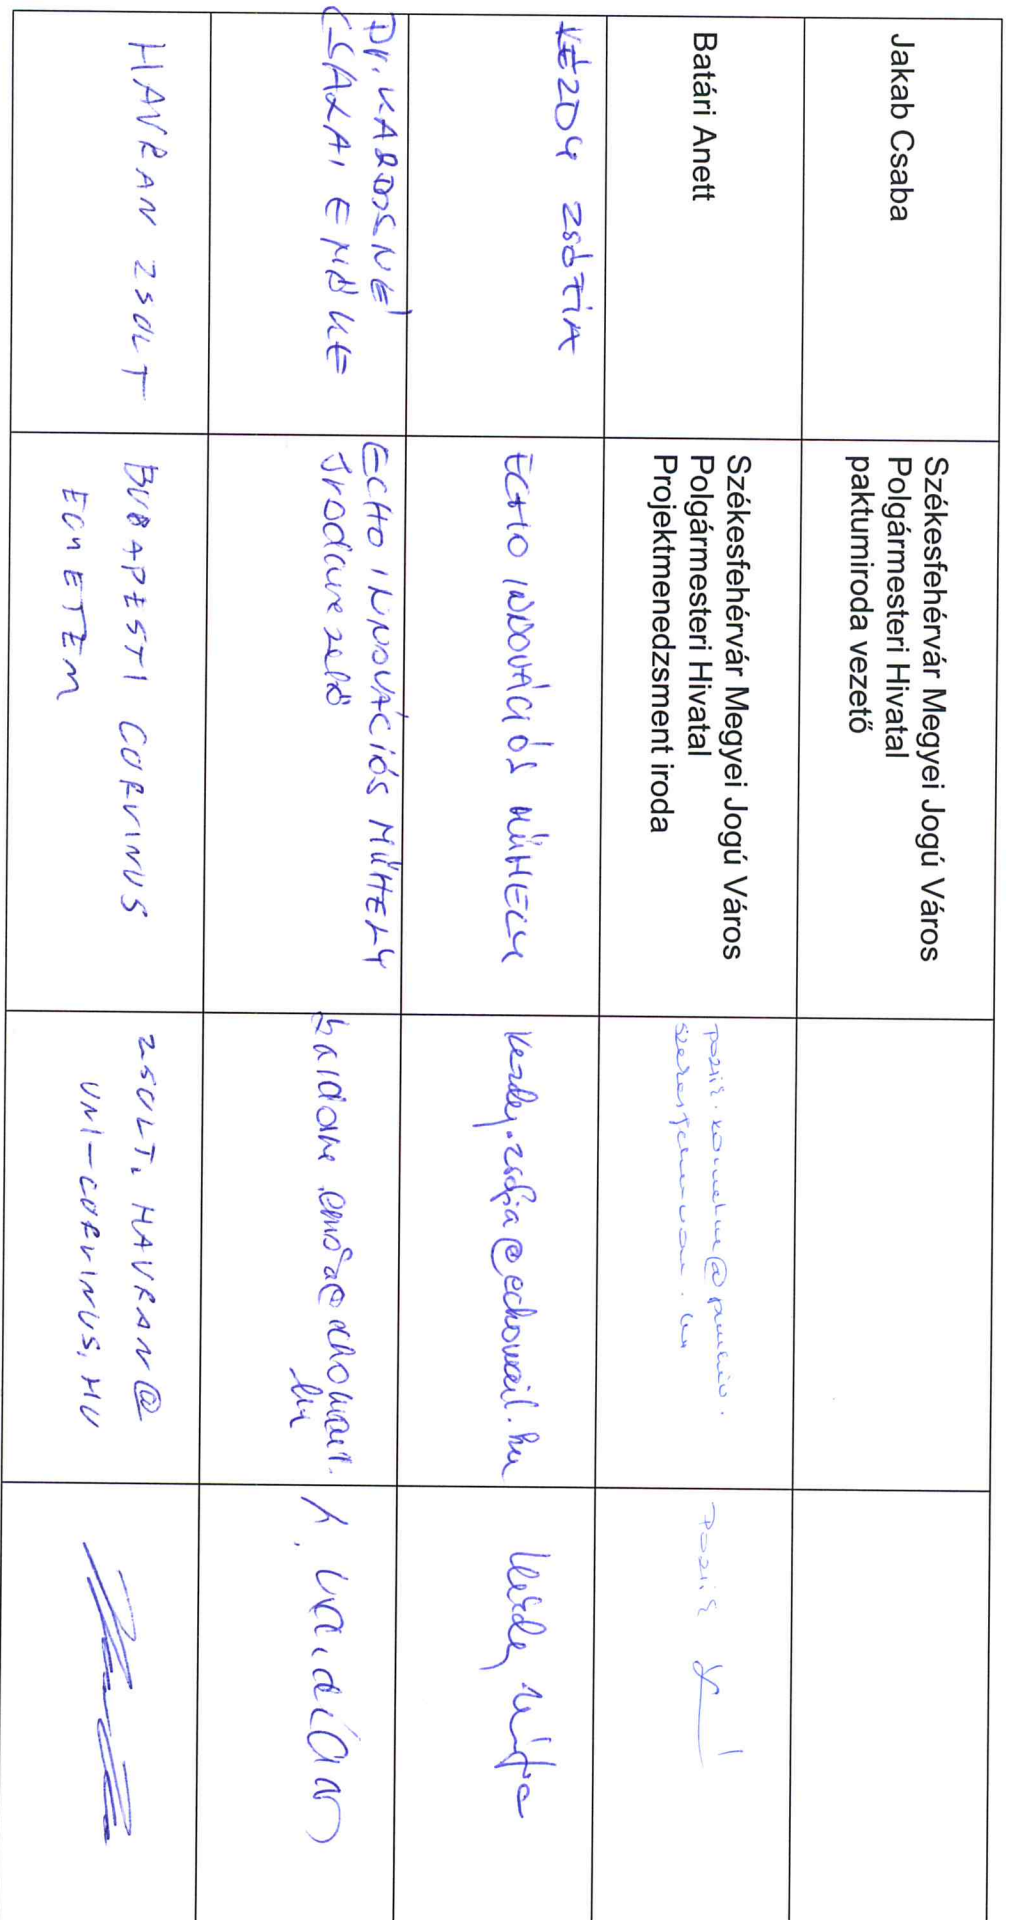 Jakab Csaba
Székesfehérvár Megyei Jogú Város
Polgármesteri Hivatal
paktumiroda vezető
Batári Anett
Székesfehérvár Megyei Jogú Város
Polgármesteri Hivatal
Projektmenedzsment iroda
KÉZDY ZSÓFIA
ECHO INNOVÁCIÓS MŰHELY
kezdy.zsofia@echomail.hu
Kézdy Zsófia
Dr. KARDOSNÉ
CSALAI EMŐKE
ECHO INNOVÁCIÓS MŰHELY
Irodavezető
HAVRAN ZSOLT
BUDAPESTI CORVINUS
EGYETEM
ZSOLT.HAVRAN@
UNI-CORVINUS.HU